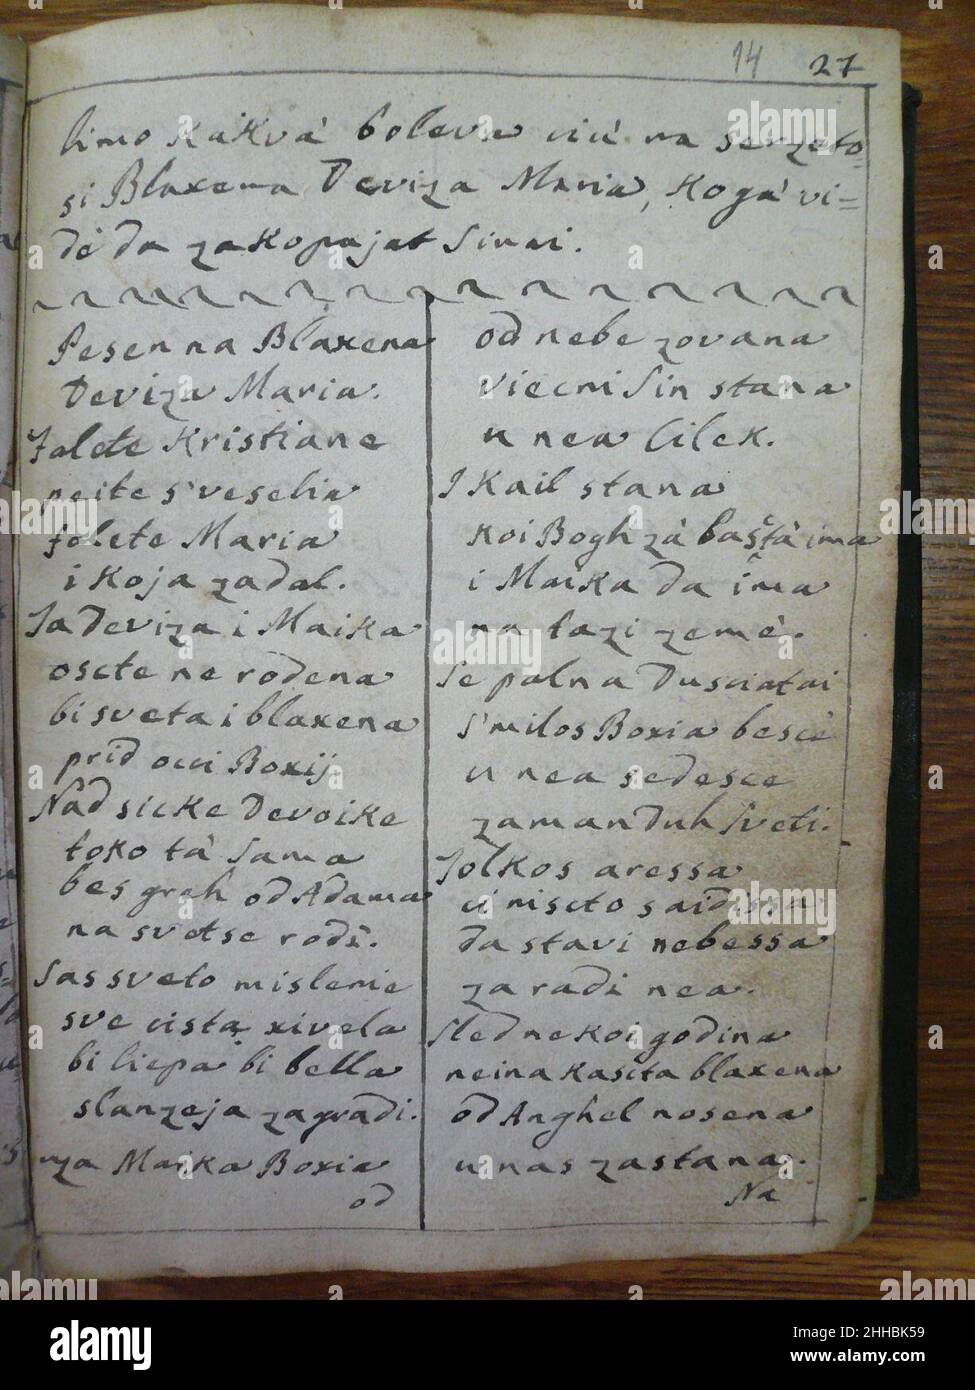 14 27
limo kakvà boleva ciù na serzeto-
si Blaxena Deviza Maria, kogà vi=
dè da zakopajat Sinai.
Pesen na Blaxena
Deviza Maria.
Falete Kristiane
peite s'veselia
falete Maria
i koja zadal.
Ta Deviza i Maika
oscte ne rodena
bi sveta i blaxena
prid ocui Boxij.
Nad sicke Devoike
toko tà Sama
bes greh od Adama
na svetse rodi.
Sas sveto mislenie
sve cista xivela
bi liepa bi bella
slanzeja zagradi.
za Maika Boxia
od
od nebe zovana
viecni Sin stana
u nea Cilek.
I Kail stana
koi Bogh zà bastà ima
i Maika da ima
na tazi zemè.
Se palna Dusciatai
S'milos Boxia bescè
u nea sedesce
zaman Duh Sveti.
Tolkos aressa
ci niscto saidissa
da stavi nebessa
za radi nea.
Sled nekoi godina
neina kascta blaxena
od Anghel nosena
u nas zastana.
Na
alamy
Image ID: 2HHBK59
www.alamy.com